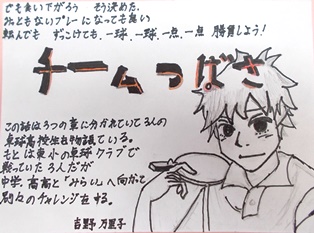 でも食い下がろう そう決めた。
みっともないプレーになっても良い
転んでも ずっこけても、一球、一球、一点、一点 勝負しよう!
チームつばさ
この話は3つの章に分かれていて3人の
卓球高校生を物語している。
もとは東小の卓球クラブで
戦っていた3人だが
中学、高高と「みらい」へ向かって
別々のチャレンジをする。
吉野 万里子